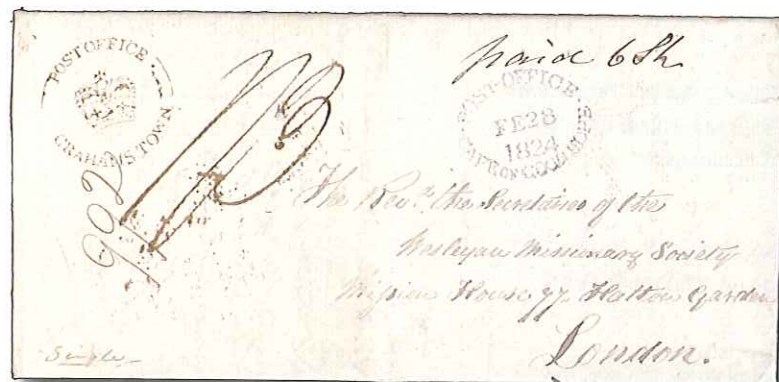 POST OFFICE
GRAHAMSTOWN
paid 6 Sh
POST-OFFICE
FE28
1824
CAPE OF GOOD HOPE
902
The Revd. the Secretaries of the
Wesleyan Missionary Society
Mission House 77 Hatton Garden
London.
Single